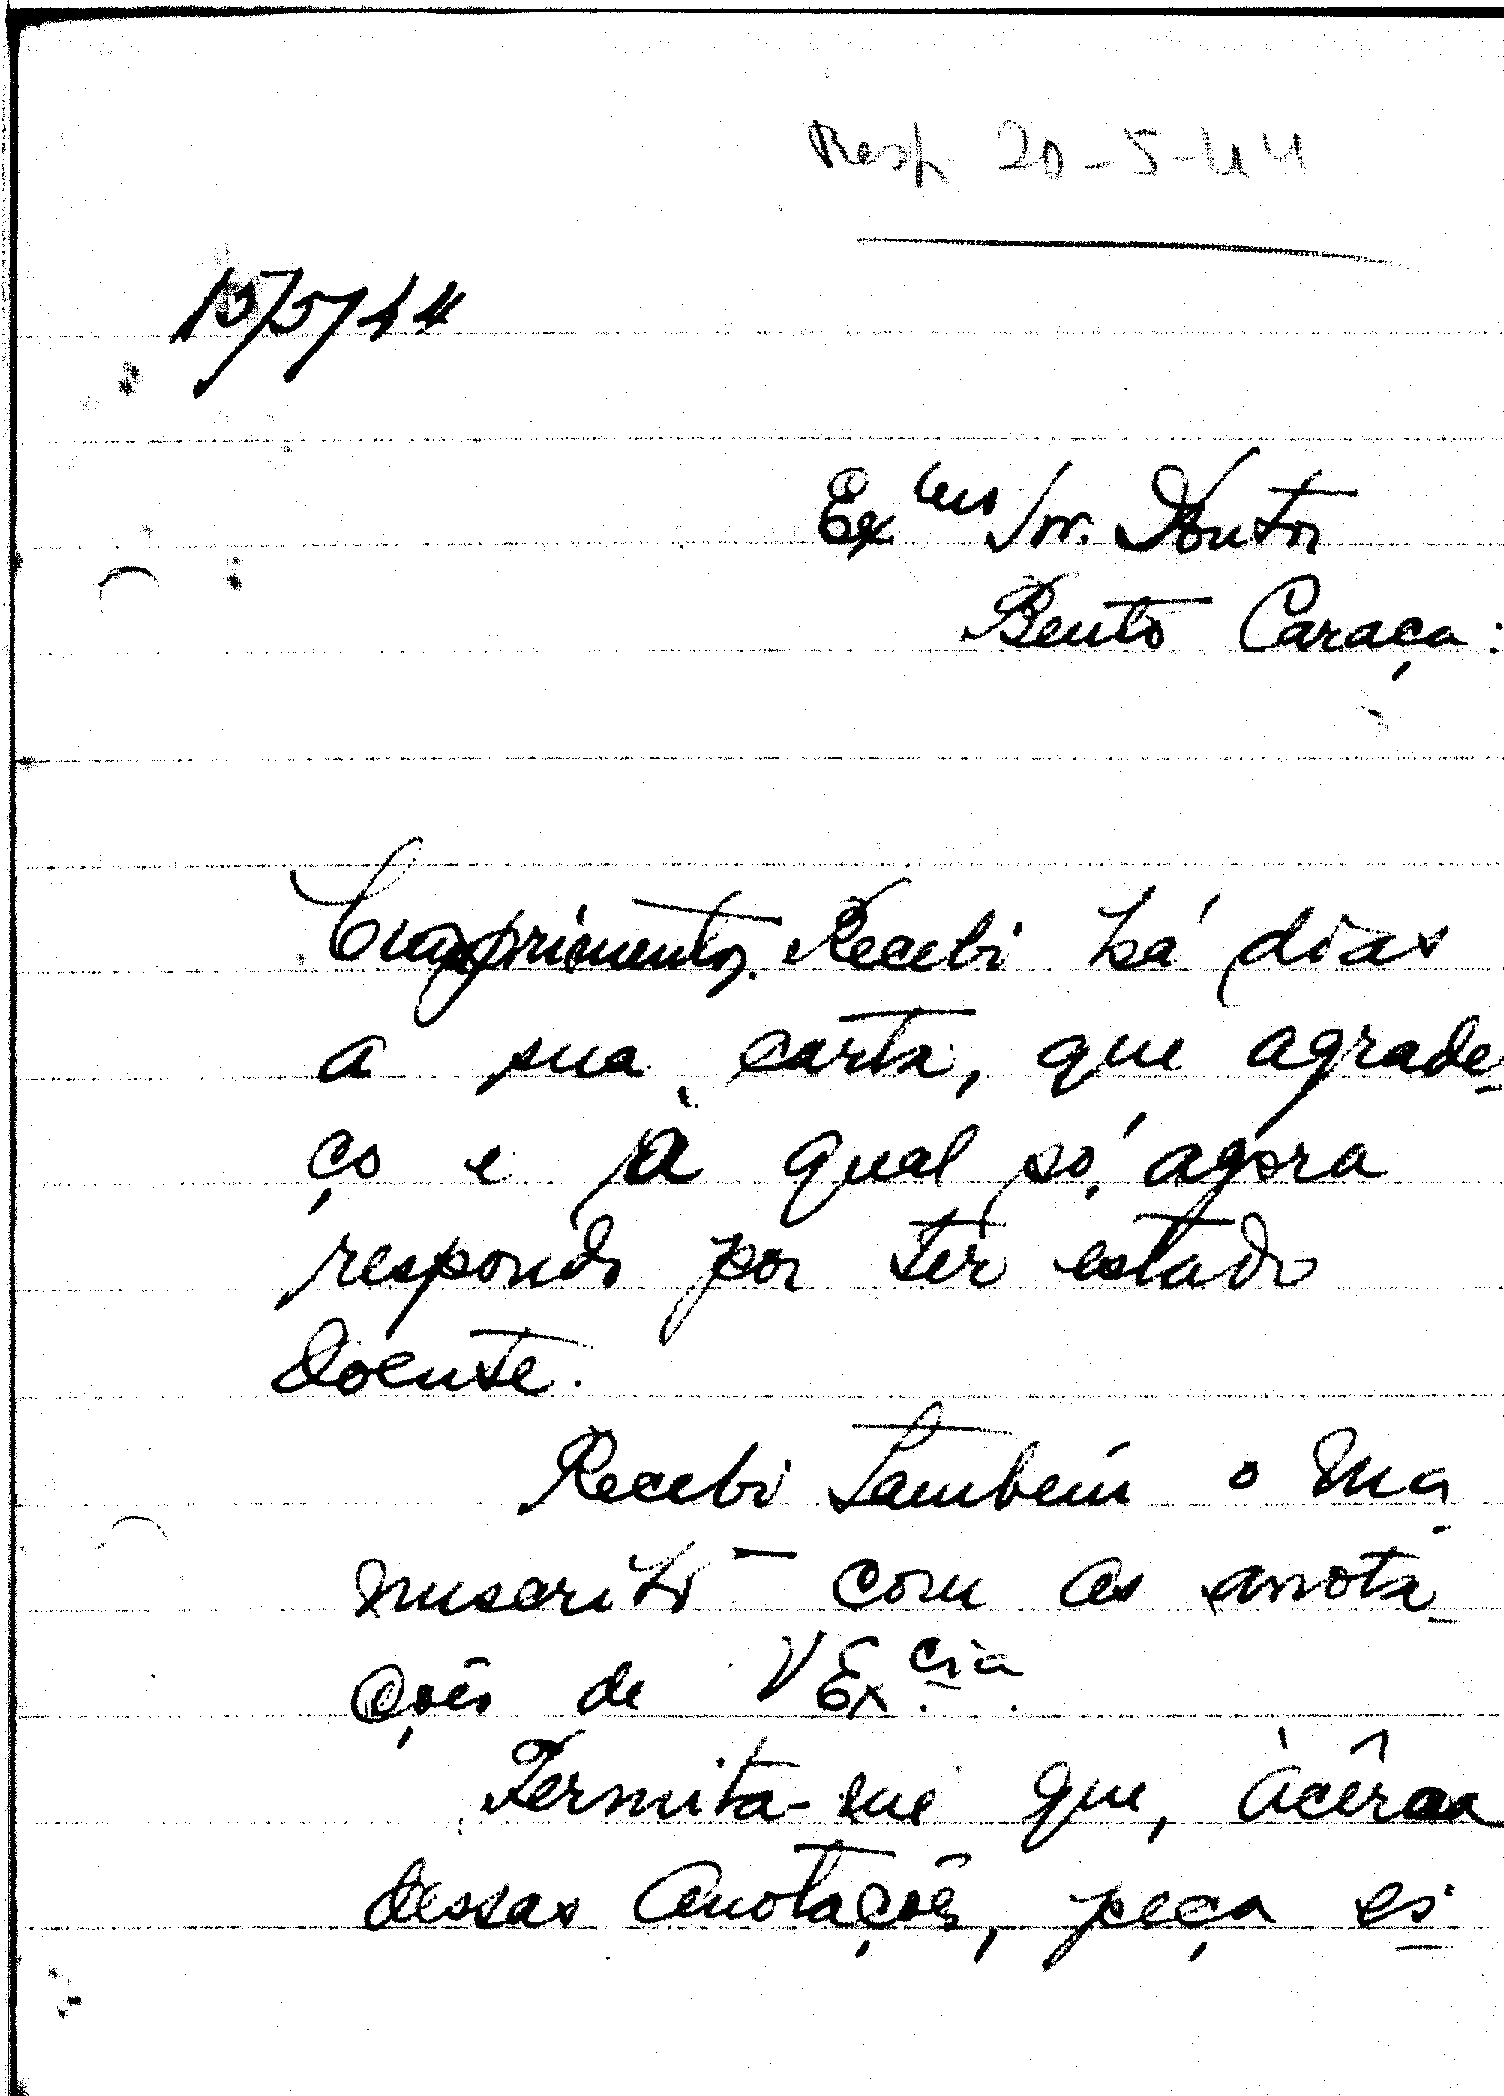 Resp 20-5-44
15/5/44
Exmo Snr. Doutor
Bento Caraça:
Cumprimentos. Recebi há dias
a sua carta, que agrade-
ço e à qual só agora
respondo por ter estado
doente.
Recebi também o ma-
nuscrito com as anota-
ções de V Ex.cia.
Permita-me que, àcêrca
dessas anotações, peça es-